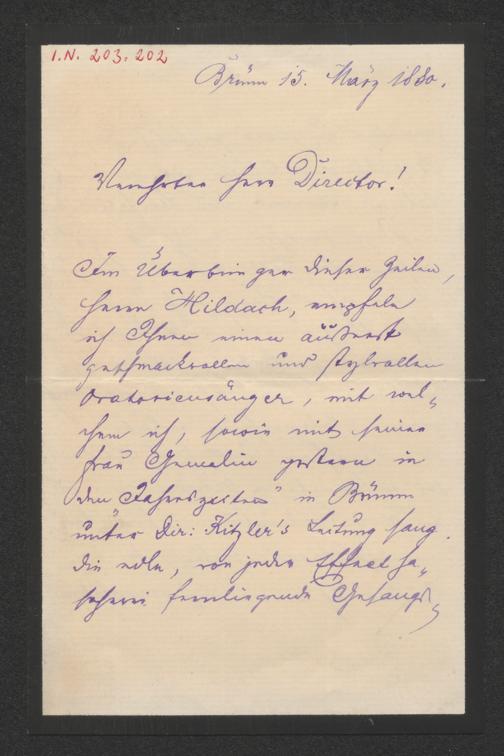 I.N. 203.202
Brünn 15. März 1880.
Verehrter Herr Director!
Im Überbringer dieser Zeilen,
Herrn Hildach, empfele
ich Ihnen einen äußerst
geschmackvollen und stylvollen
Oratoriensänger, mit wel-
chem ich, sowie mit seiner
Frau Gemalin gestern in
den Jahreszeiten" in Brünn
unter Dir: Kitzler's Leitung sang.
Die edle, von jeder Effectha-
scherei fernliegende Gesangs-